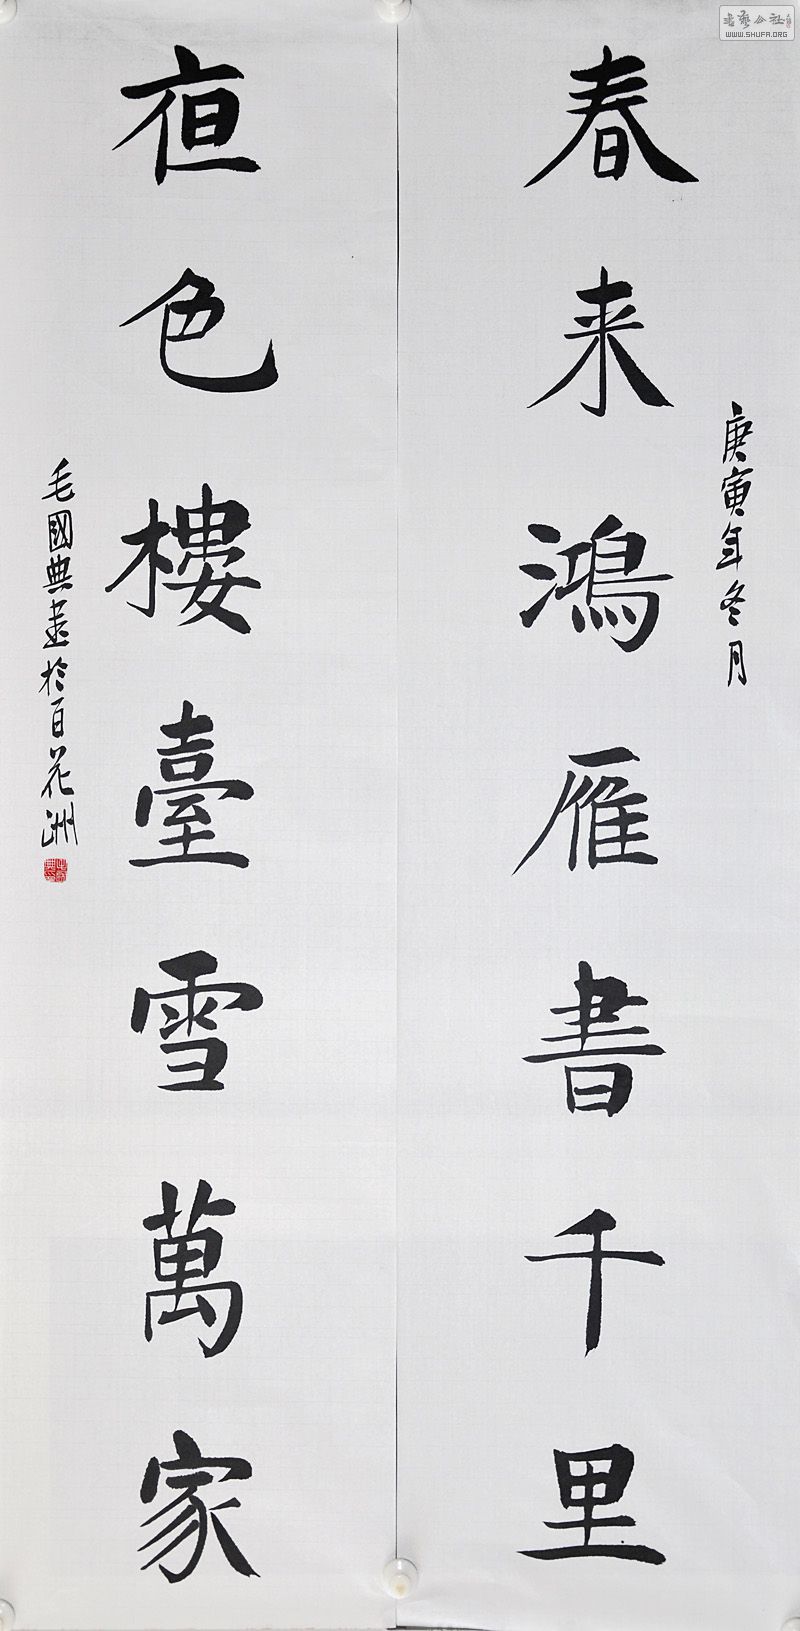 書藝公社
WWW.SHUFA.ORG
庚寅年冬月
春来鴻雁書千里
亱色樓臺雪萬家
毛國典書於百花洲